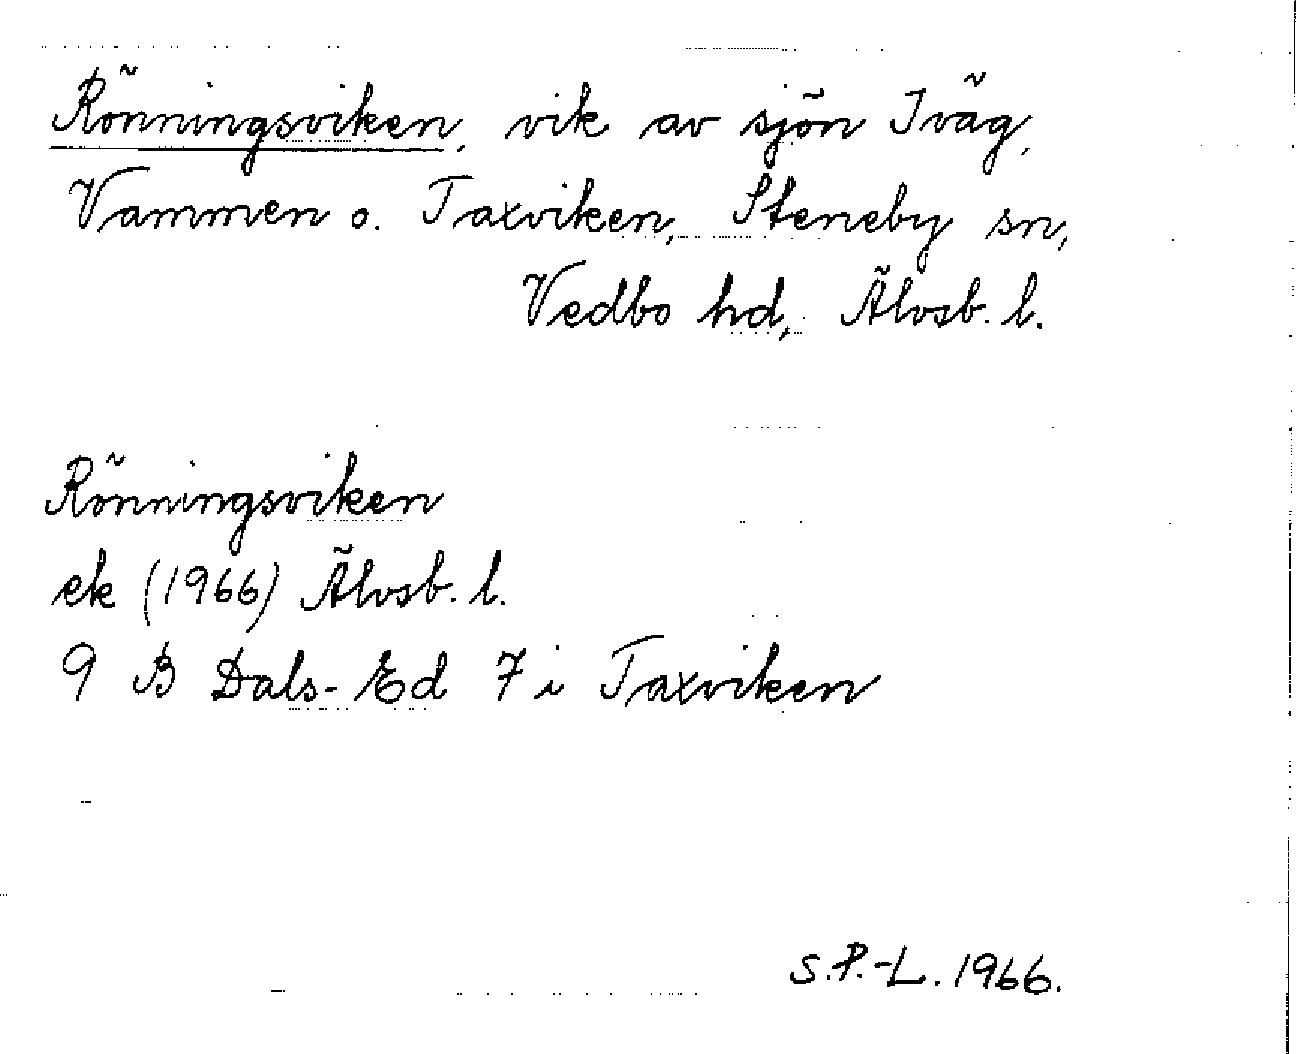 Rönningsviken, vik av sjön Iväg,
Vammen o. Taxviken, Steneby sn,
Vedbo hd, Älvsb. l.
Rönningsviken
ek (1966) Älvsb. l.
9 B Dals-Ed 7 i Taxviken
S.P.-L. 1966.